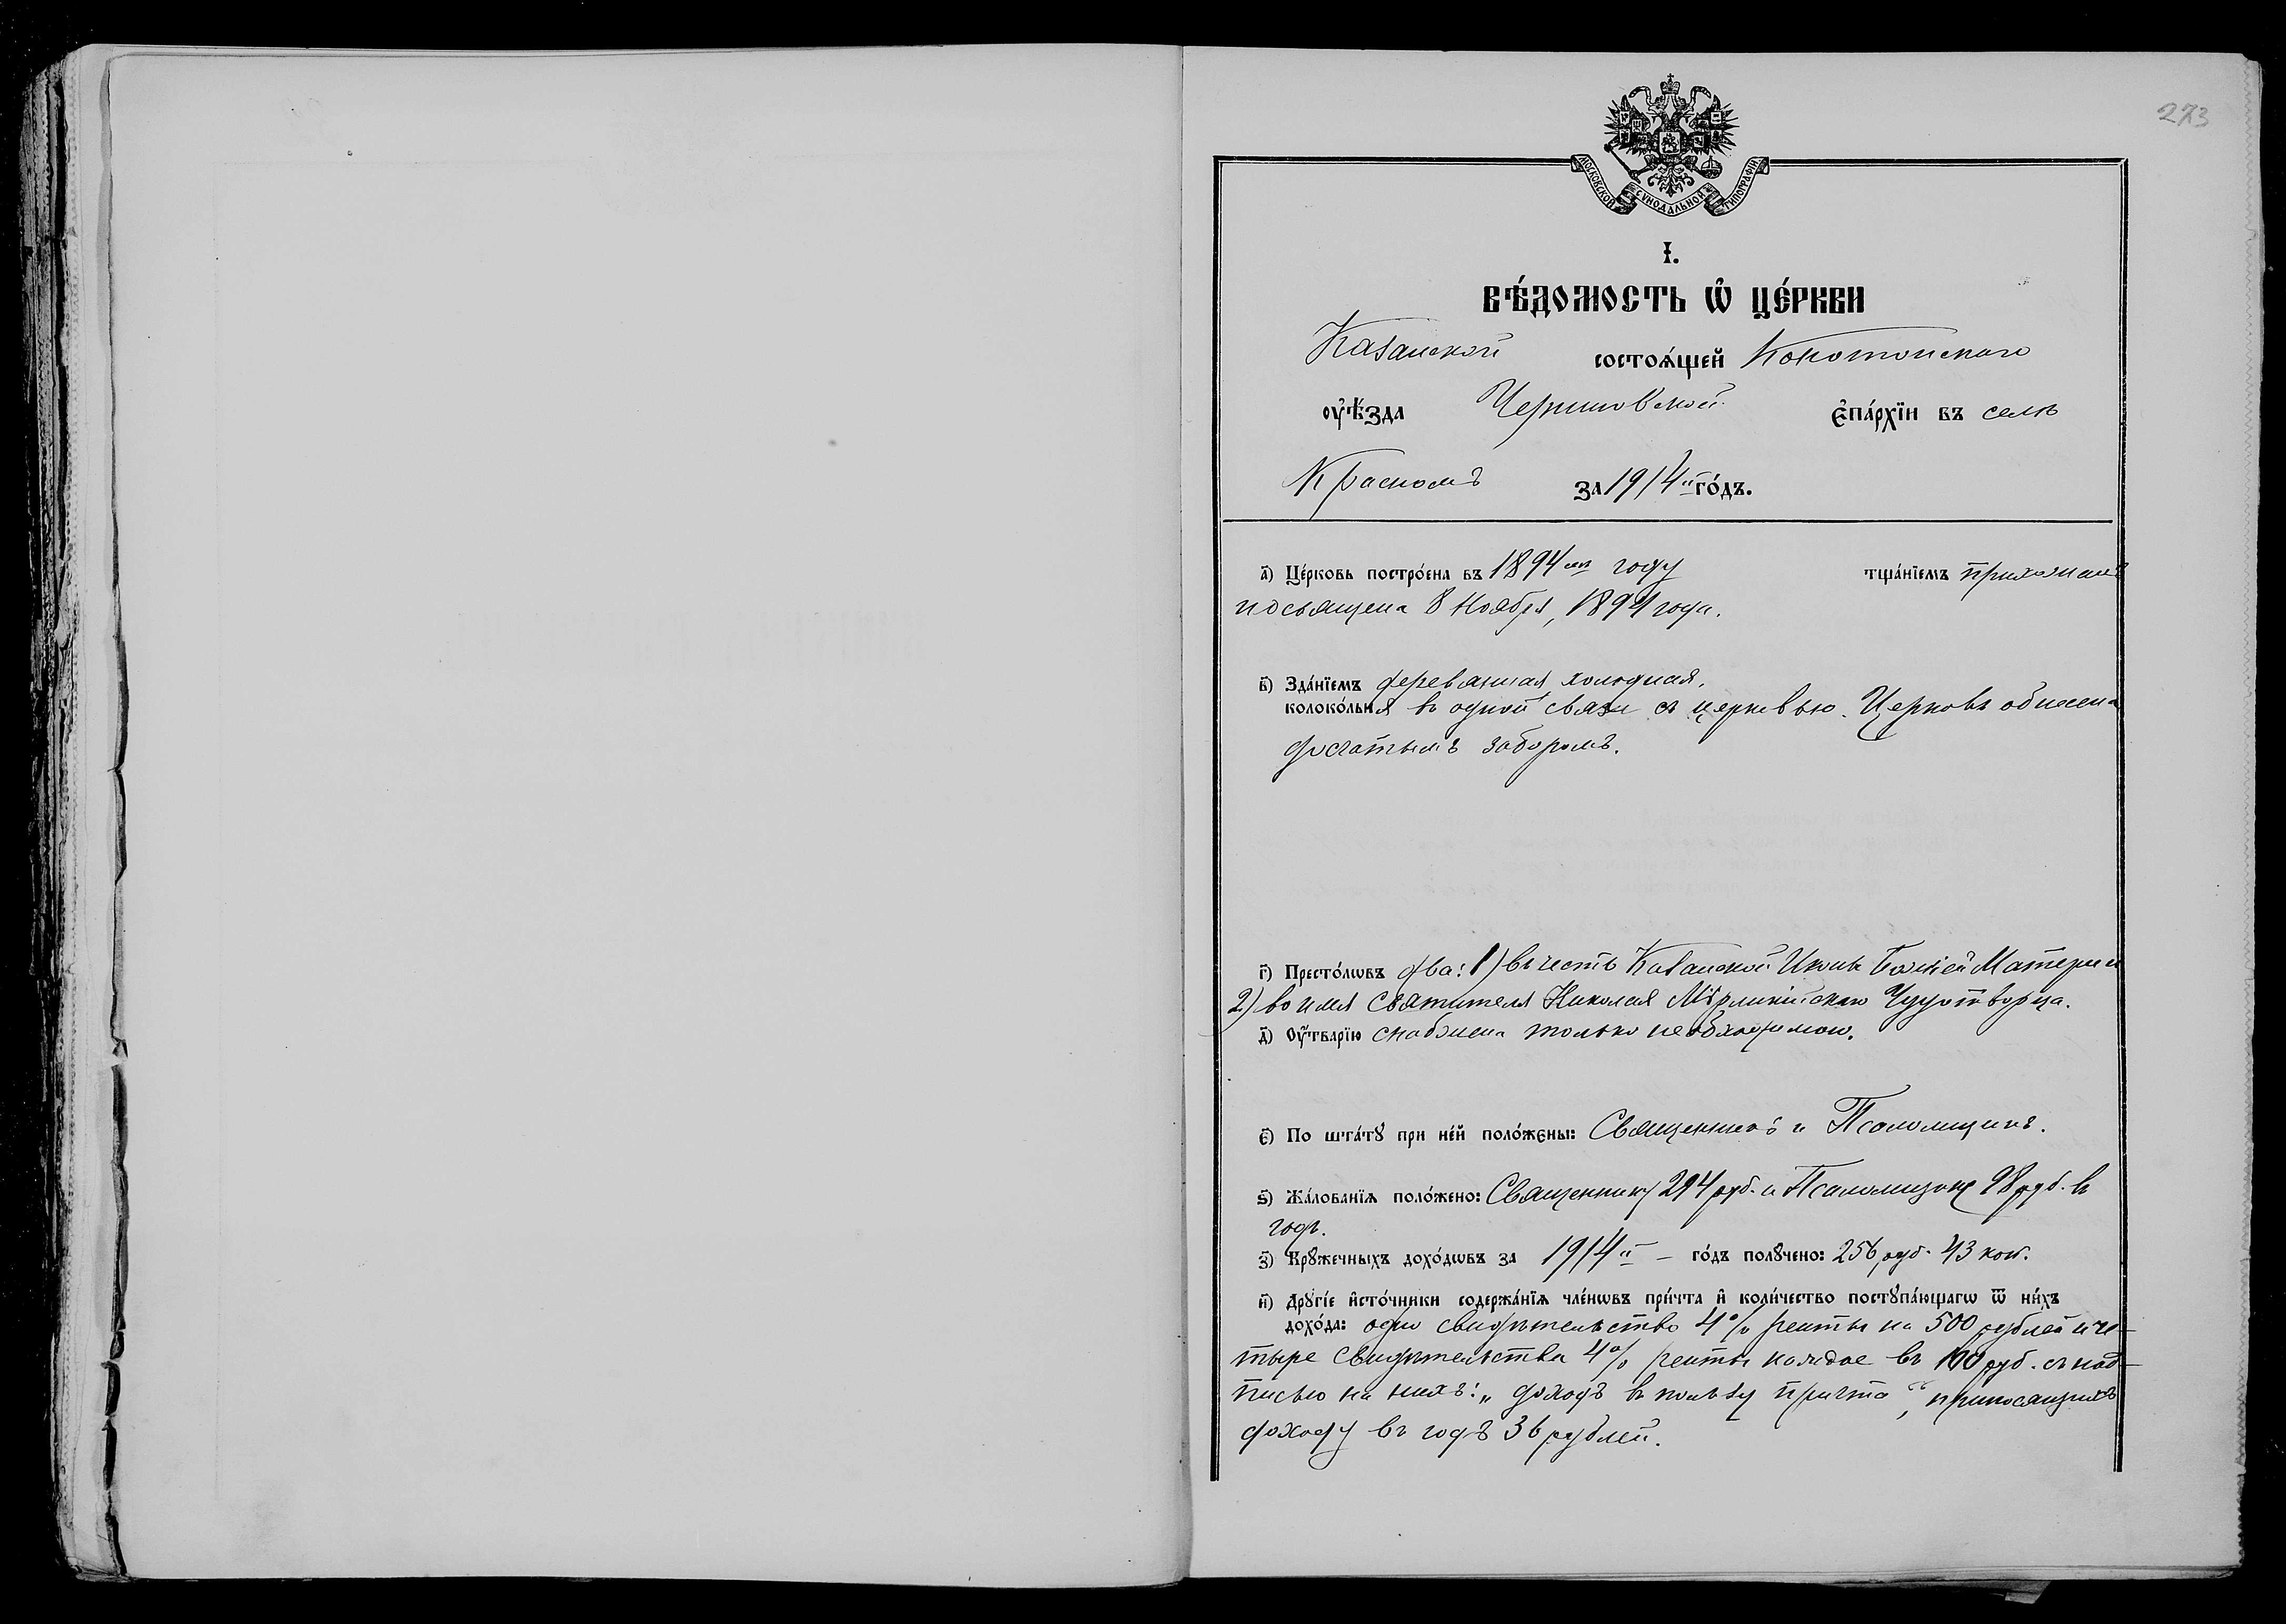 273
МОСКОВСКОЙ СѴНОДАЛЬНОЙ ТИПОГРАФІИ
І.
ВѢ́ДОМОСТЬ Ѡ҆ ЦЕ́РКВИ
Казанской состоѧ́щей Конотопскаго
ᲂу҆ѣ́зда Черниговской є҆па́рхїи въ селѣ
Красномъ за 1914й го́дъ.
а҃) Це́рковь постро́ена въ 1894мъ году тща́нїемъ прихожанъ
посвящена 8 Ноября, 1894 года.
в҃) Зда́нїемъ деревянная холодная,
колоко́льня въ одной связи съ церковью. Церковь обнесена
досчатымъ заборомъ.
г҃) Престо́лѡвъ два: 1) въ честь Казанской Иконы Божіей Матери и
2) во имя Святителя Николая Мѵрликійскаго Чудотворца.
д҃) Оу҆́тварїю снабжена только необходимою.
є҃) По шта́тꙋ при не́й поло́жены: Священникъ и Псаломщикъ.
ѕ҃) Жа́лованїѧ поло́жено: Священнику 294 руб. и Псаломщику 98 руб. въ
годъ.
з҃) Крꙋ́жечныхъ дохо́дѡвъ за 1914й – го́дъ полꙋ́чено: 256 руб. 43 коп.
и҃) Дрꙋгі́е и҆сто́чники содержа́нїѧ чле́нѡвъ при́чта и҆ коли́чество постꙋпа́ющагѡ ѿ ни́хъ
дохо́да: одно свидѣтельство 4% ренты на 500 рублей и че-
тыре свидѣтельства 4% ренты каждое въ 100 руб. съ над-
писью на нихъ: „доходъ въ пользу причта“, приносящихъ
доходу въ годъ 36 рублей.